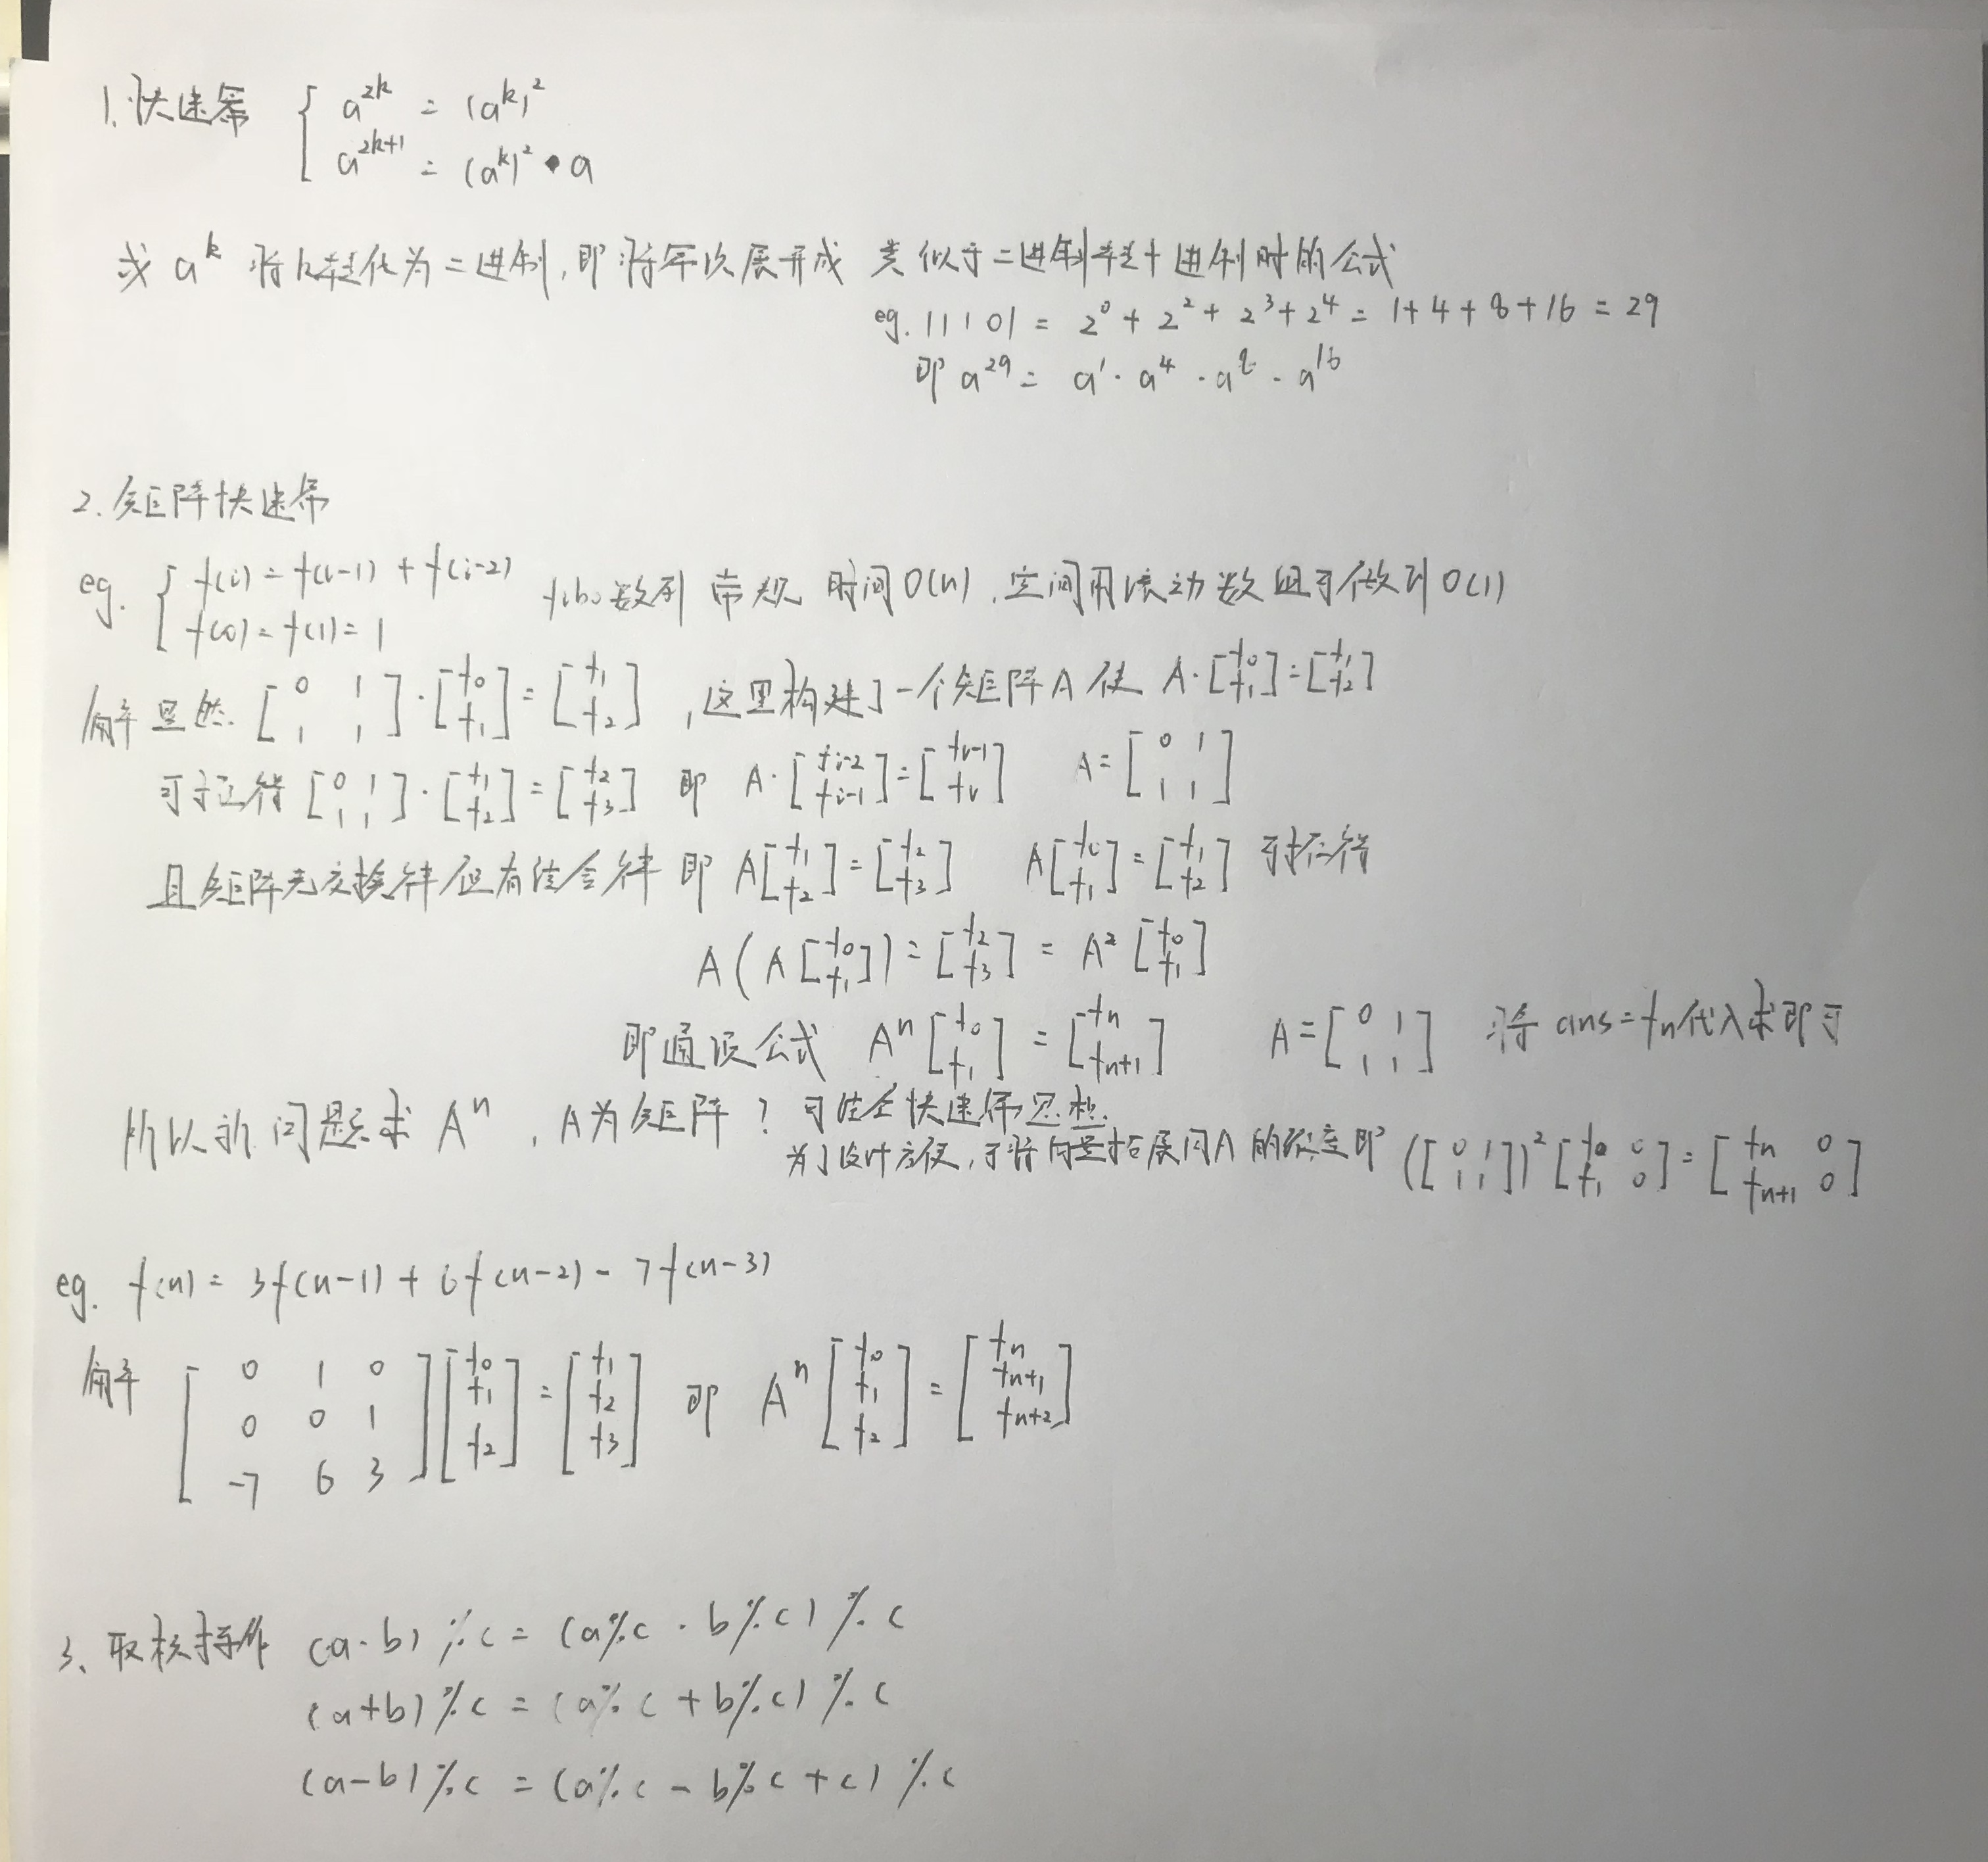 1. 快速幂 { a^{2k} = (a^k)^2
a^{2k+1} = (a^k)^2 · a
求 a^k 将k转化为二进制, 即将幂次展开成 类似于二进制转十进制时的公式
eg. 11101 = 2^0 + 2^2 + 2^3 + 2^4 = 1+4+8+16 = 29
即 a^{29} = a^1 · a^4 · a^8 · a^{16}
2. 矩阵快速幂
eg. { f(i) = f(i-1) + f(i-2)
f(0) = f(1) = 1 fibo数列 常规 时间O(n), 空间用滚动数组可做到O(1)
解 显然 [0 1; 1 1] · [f_0; f_1] = [f_1; f_2], 这里构建了一个矩阵A 使 A · [f_0; f_1] = [f_1; f_2]
可验证得 [0 1; 1 1] · [f_1; f_2] = [f_2; f_3] 即 A · [f_{i-2}; f_{i-1}] = [f_{i-1}; f_i] A = [0 1; 1 1]
且矩阵无交换律但有结合律 即 A[f_1; f_2] = [f_2; f_3] A[f_0; f_1] = [f_1; f_2] 得
A(A[f_0; f_1]) = [f_2; f_3] = A^2[f_0; f_1]
即通项公式 A^n[f_0; f_1] = [f_n; f_{n+1}] A = [0 1; 1 1] 将 ans = f_n代入求即可
所以新问题求 A^n, A为矩阵? 可结合快速幂思想.
为了设计方便, 可将向量拓展同A 的 即 ([0 1; 1 1])^2 [f_0 0; f_1 0] = [f_n 0; f_{n+1} 0]
eg. f(n) = 3f(n-1) + 6f(n-2) - 7f(n-3)
解 [0 1 0; 0 0 1; -7 6 3][f_0; f_1; f_2] = [f_1; f_2; f_3] 即 A^n[f_0; f_1; f_2] = [f_n; f_{n+1}; f_{n+2}]
3、取模操作 (a·b) % c = (a%c · b%c) % c
(a+b) % c = (a%c + b%c) % c
(a-b) % c = (a%c - b%c + c) % c